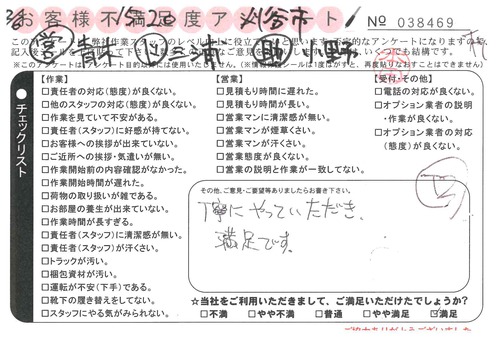 お客様不満足度アンケート
刈谷市
No 038469
営 青木
三浦
小野
チェックリスト
【作業】
□責任者の対応(態度)が良くない。
□他のスタッフの対応(態度)が良くない。
□作業を見ていて不安がある。
□責任者(スタッフ)に好感が持てない。
□お客様への挨拶が出来ていない。
□ご近所への挨拶・気遣いが無い。
□作業開始前の内容確認がなかった。
□作業開始時間が遅れた。
□荷物の取り扱いが雑である。
□お部屋の養生が出来ていない。
□作業時間が長すぎる。
□責任者(スタッフ)に清潔感が無い。
□責任者(スタッフ)が汗くさい。
□トラックが汚い。
□梱包資材が汚い。
□運転が不安(下手)である。
□靴下の履き替えをしてない。
□スタッフにやる気がみられない。
【営業】
□見積もり時間に遅れた。
□見積もり時間が長い。
□営業マンに清潔感が無い。
□営業マンが煙草くさい。
□営業マンが汗くさい。
□営業態度が良くない。
□営業の説明と作業が一致してない。
【受付・その他】
□電話の対応が良くない。
□オプション業者の説明
・作業が良くない。
□オプション業者の対応
(態度)が良くない。
その他、ご意見・ご要望等ありましたらお書き下さい。
丁寧にやっていただき、
満足です。
☆当社をご利用いただきまして、ご満足いただけたでしょうか?
□不満 □やや不満 □普通 □やや満足 ☑満足